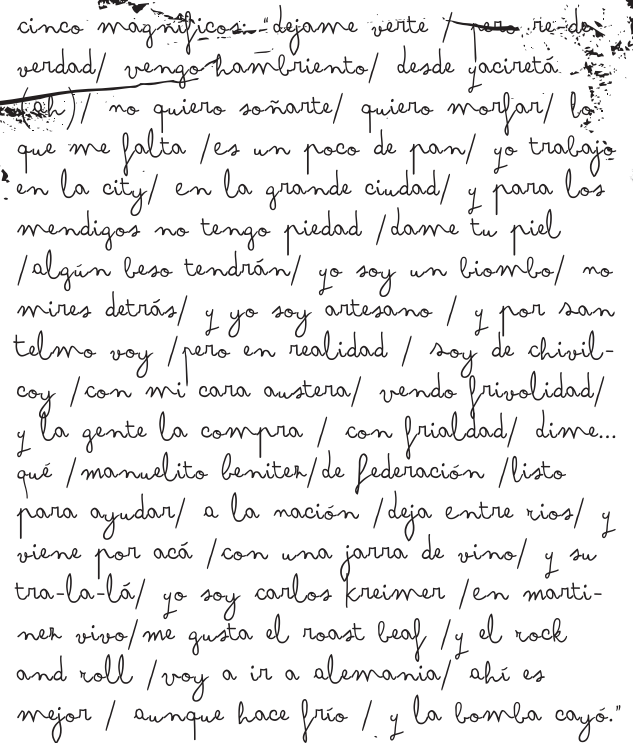 cinco magníficos: "dejame verte / pero re-de
verdad/ vengo hambriento/ desde yaciretá
(ah)/ no quiero soñarte/ quiero morfar/ lo
que me falta /es un poco de pan/ yo trabajo
en la city/ en la grande ciudad/ y para los
mendigos no tengo piedad /dame tu piel
/algún beso tendrán/ yo soy un biombo/ no
mires detrás/ y yo soy artesano / y por san
telmo voy /pero en realidad / soy de chivil-
coy /con mi cara austera/ vendo frivolidad/
y la gente la compra / con frialdad/ dime...
qué /manuelito benitez/de federación /listo
para ayudar/ a la nación /deja entre rios/ y
viene por acá /con una jarra de vino/ y su
tra-la-lá/ yo soy carlos kreimer /en marti-
nez vivo/me gusta el roast beaf /y el rock
and roll /voy a ir a alemania/ ahí es
mejor / aunque hace frío / y la bomba cayó."